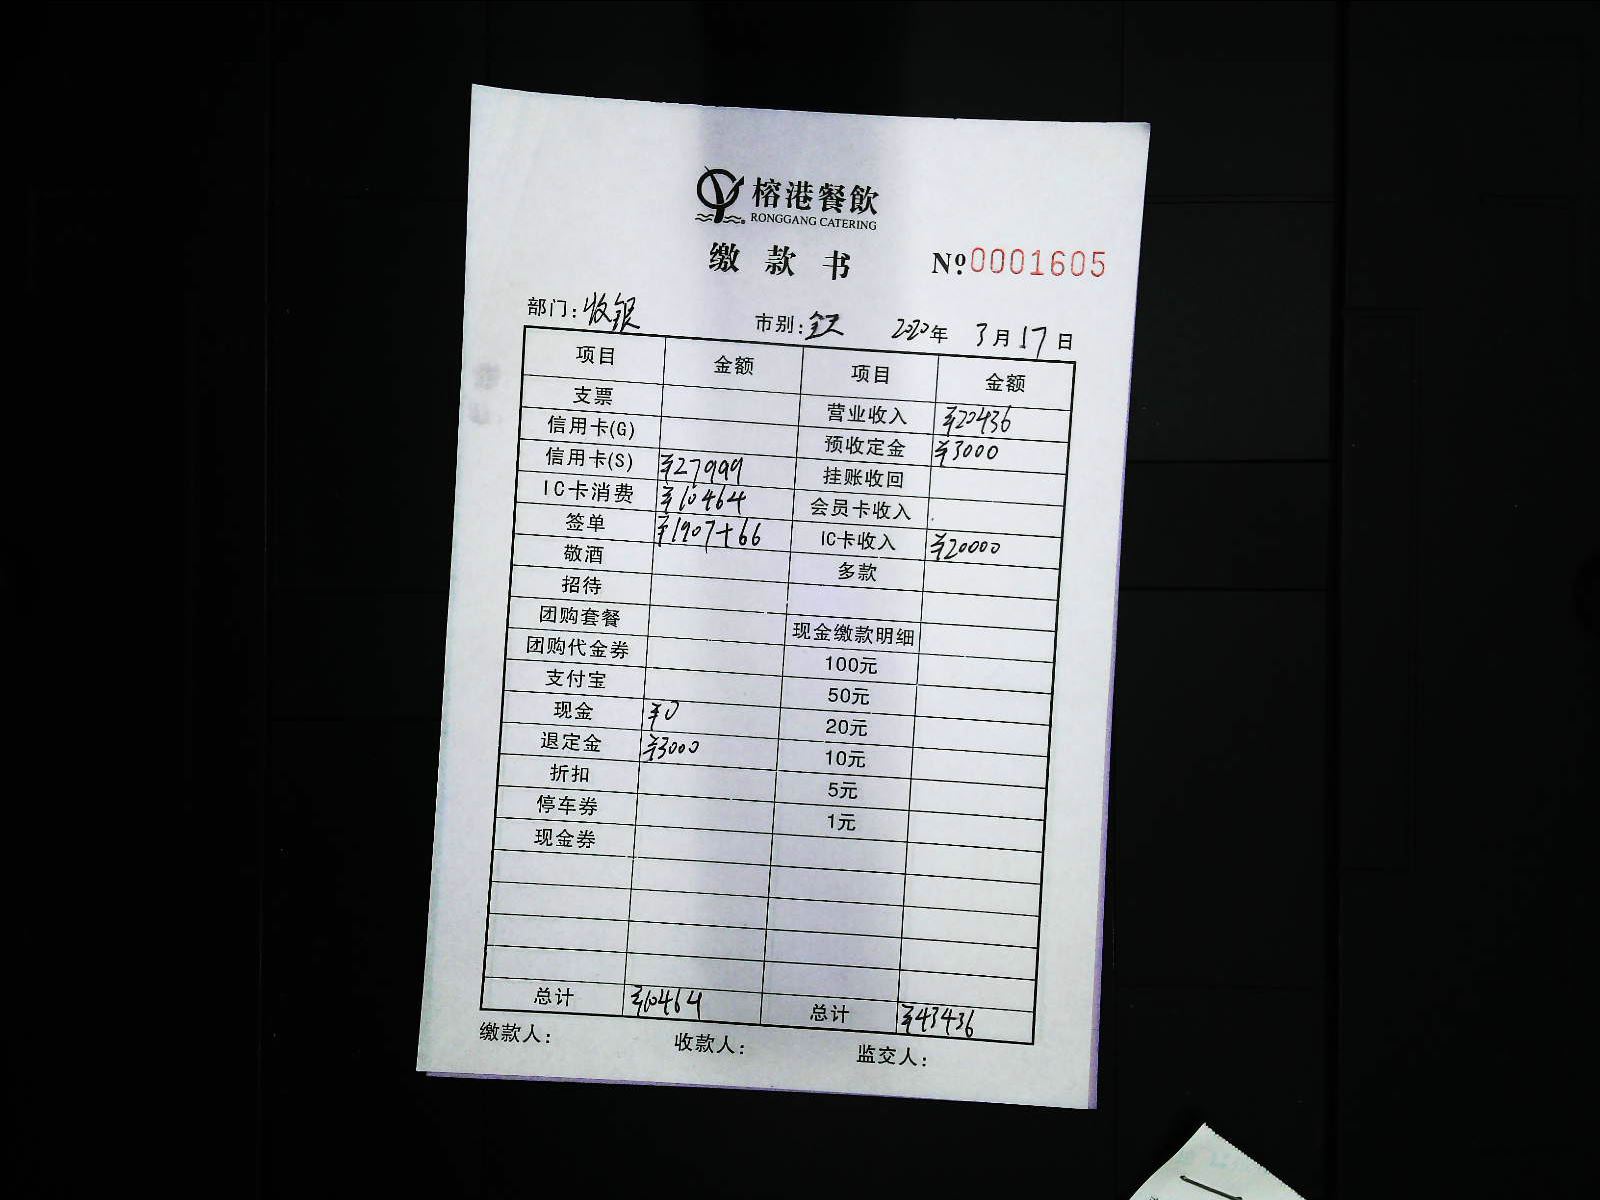 榕港餐飲
RONGGANG CATERING
缴款书 №0001605
部门：收银 市别：全天 2020年 3月17日
项目 金额 项目 金额
支票 营业收入 ¥20436
信用卡(G) 预收定金 ¥3000
信用卡(S) ¥27999 挂账收回
IC卡消费 ¥10464 会员卡收入
签单 ¥1907+66 IC卡收入 ¥20000
敬酒 多款
招待
团购套餐 现金缴款明细
团购代金券 100元
支付宝 50元
现金 ¥0 20元
退定金 ¥3000 10元
折扣 5元
停车券 1元
现金券
总计 ¥10464 总计 ¥43436
缴款人： 收款人： 监交人：